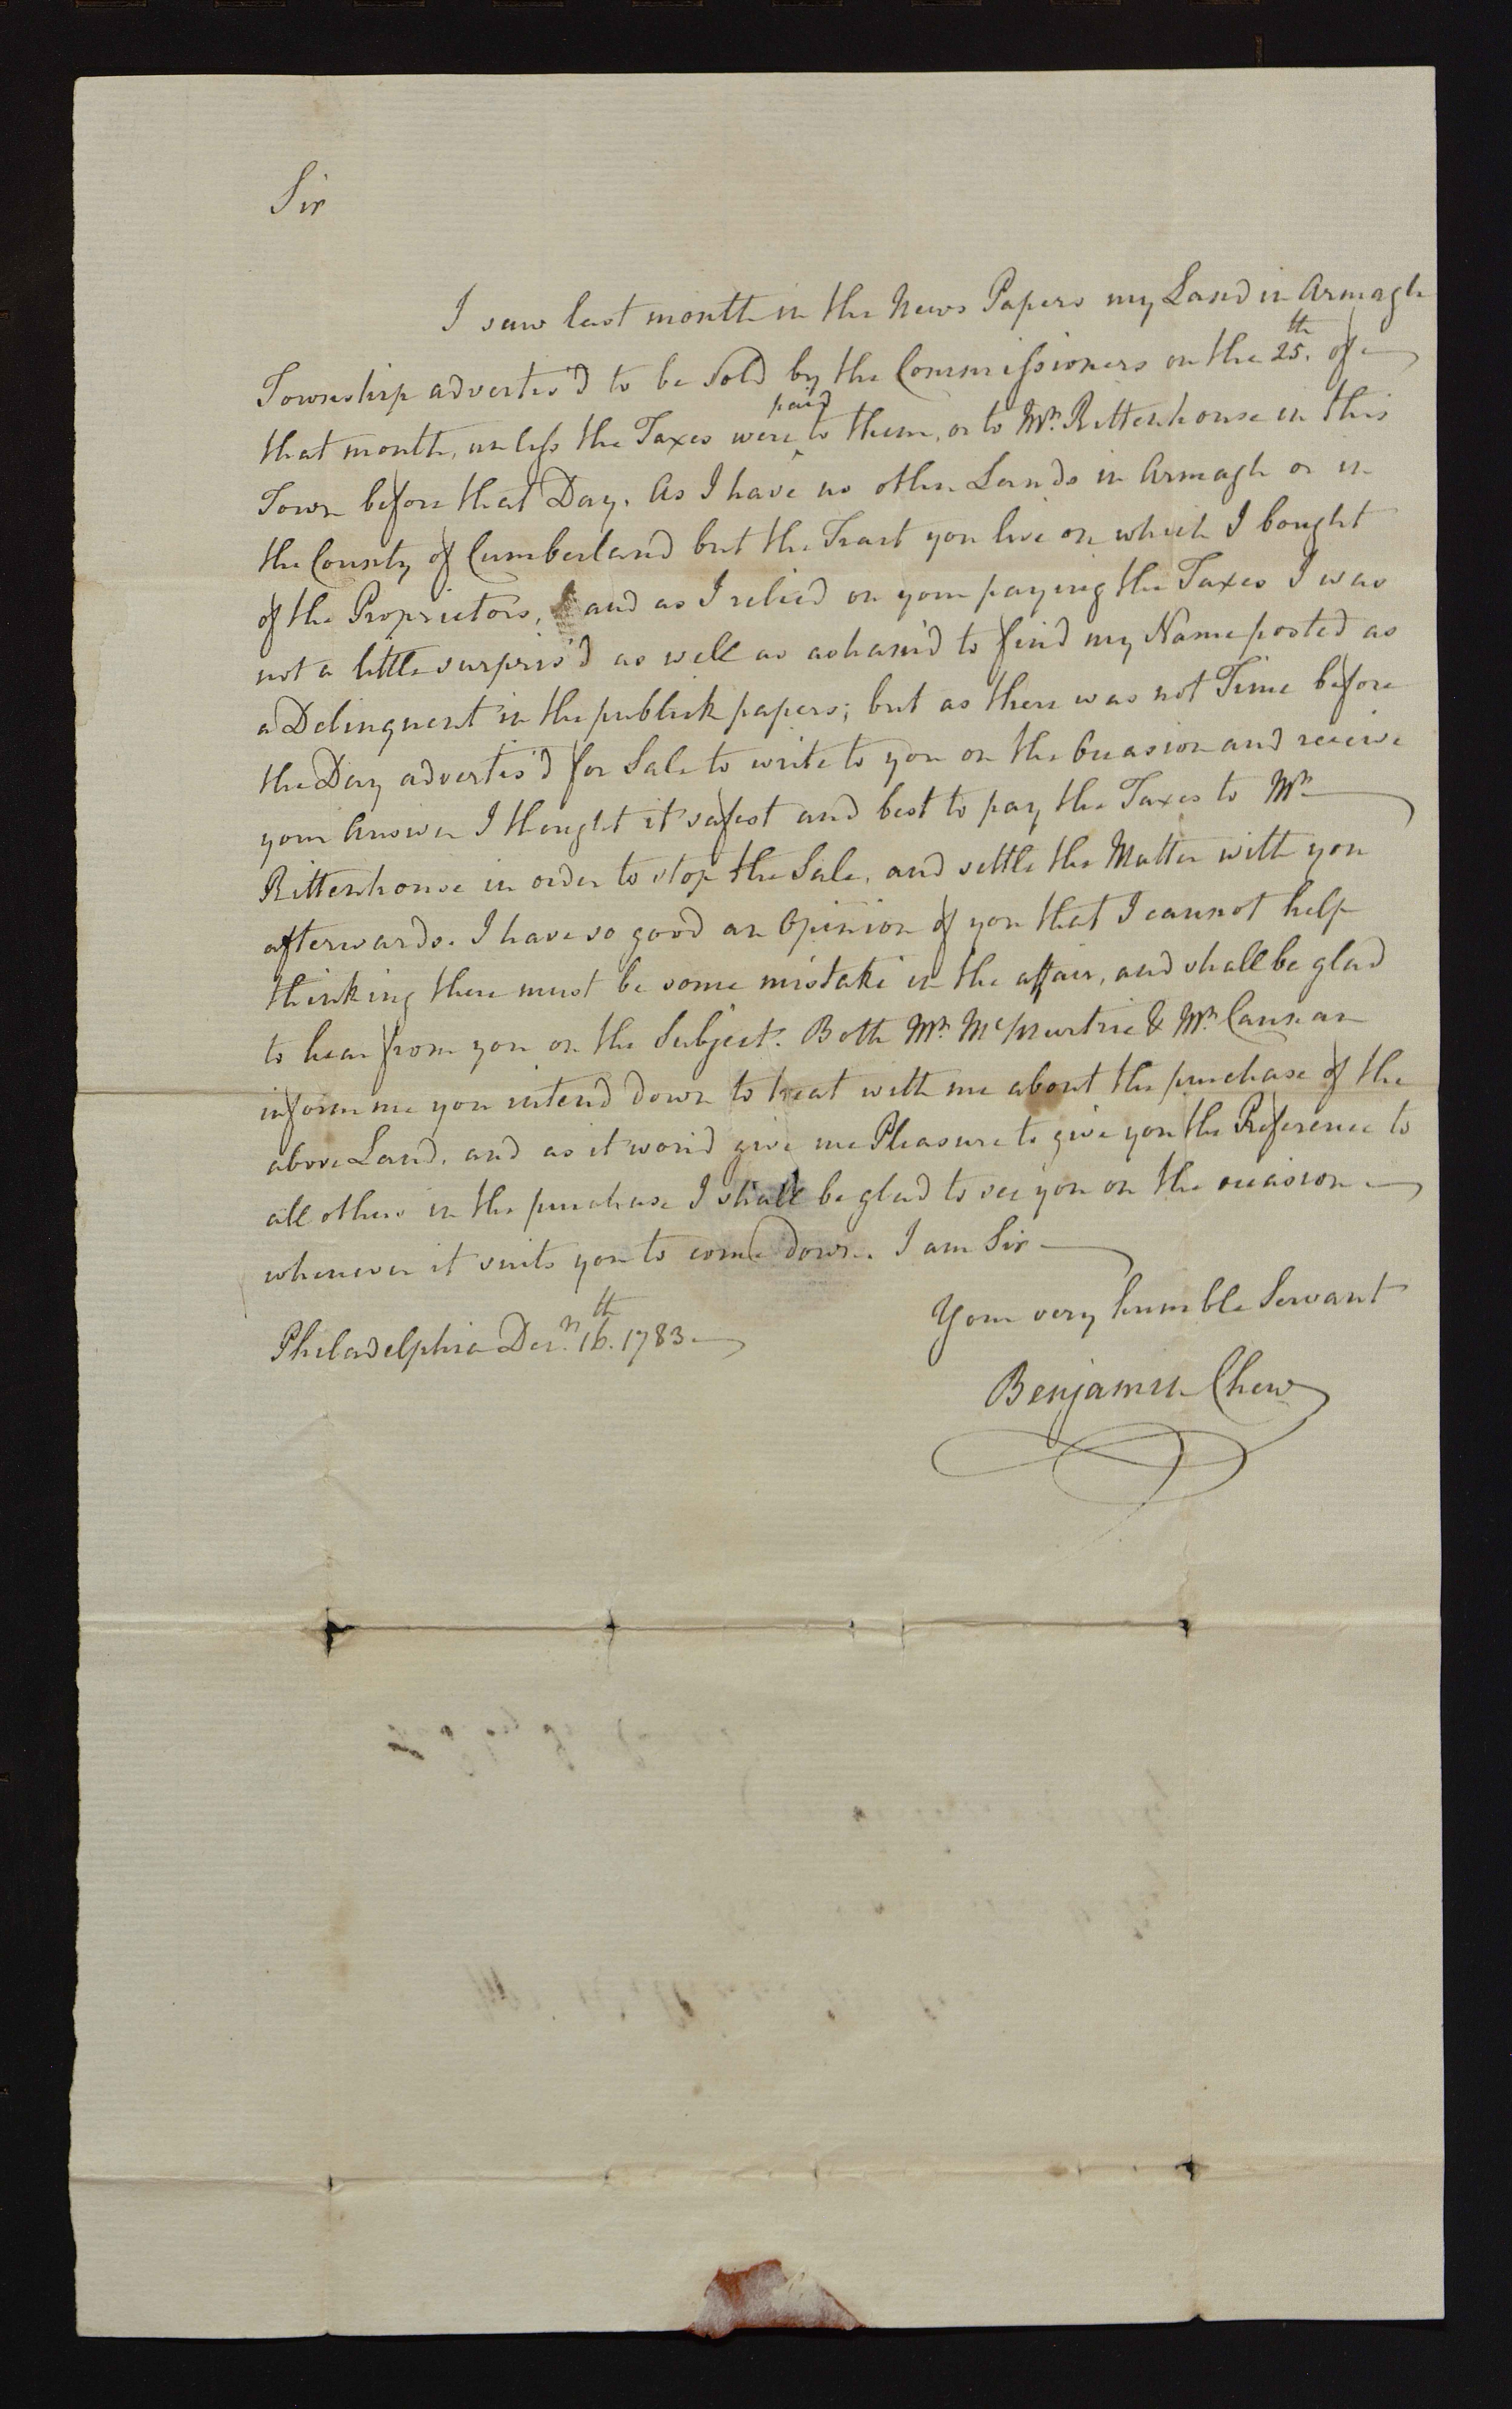 Sir
I saw last month in the News Papers my Land in Armagh
Township advertis'd to be Sold by the Commissioners on the 25.th of
that month, unless the Taxes were paid to them, or to Mr. Rittenhouse in this
Town before that Day. As I have no other Lands in Armagh or in
the County of Cumberland but the Tract you live on which I bought
of the Proprietors, and as I relied on your paying the Taxes I was
not a little surpris'd as well as asham'd to find my Name posted as
a Delinquent in the publick papers; but as there was not Time before
the Day advertis'd for Sale to write to you on the Occasion and receive
your Answer I thought it safest and best to pay the Taxes to Mr.
Rittenhouse in order to stop the Sale, and settle the Matter with you
afterwards. I have so good an Opinion of you that I cannot help
thinking there must be some mistake in the affair, and shall be glad
to hear from you on the Subject. Both Mr. McMurtrie & Mr. Cannan
inform me you intend down to treat with me about the purchase of the
above Land, and as it wou'd give me Pleasure to give you the Preference to
all others in the purchase I shall be glad to see you on the occasion
whenever it suits you to come down. I am Sir
Your very humble Servant
Philadelphia Decr. 16.th 1783
Benjamin Chew